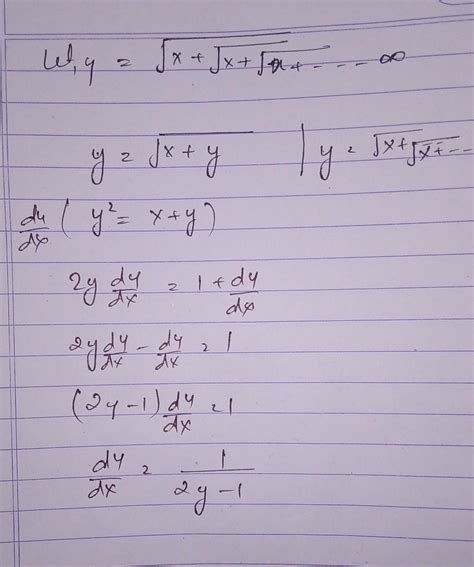 Let, y = √x + √x + √x + - - - - ∞
y = √x + y | y = √x + √x + - -
dy/dx ( y² = x + y )
2y dy/dx = 1 + dy/dx
2y dy/dx - dy/dx = 1
(2y - 1) dy/dx = 1
dy/dx = 1/2y - 1